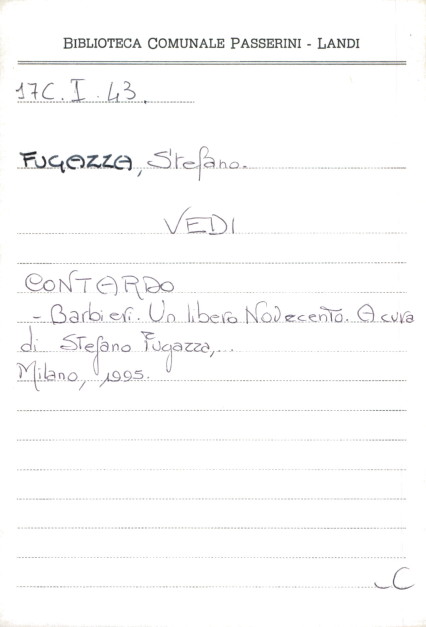 BIBLIOTECA COMUNALE PASSERINI - LANDI
17C. I. 43.
FUGAZZA, Stefano.
VEDI
CONTARDO
- Barbieri. Un libero Novecento. A cura
di Stefano Fugazza,...
Milano, 1995.
C